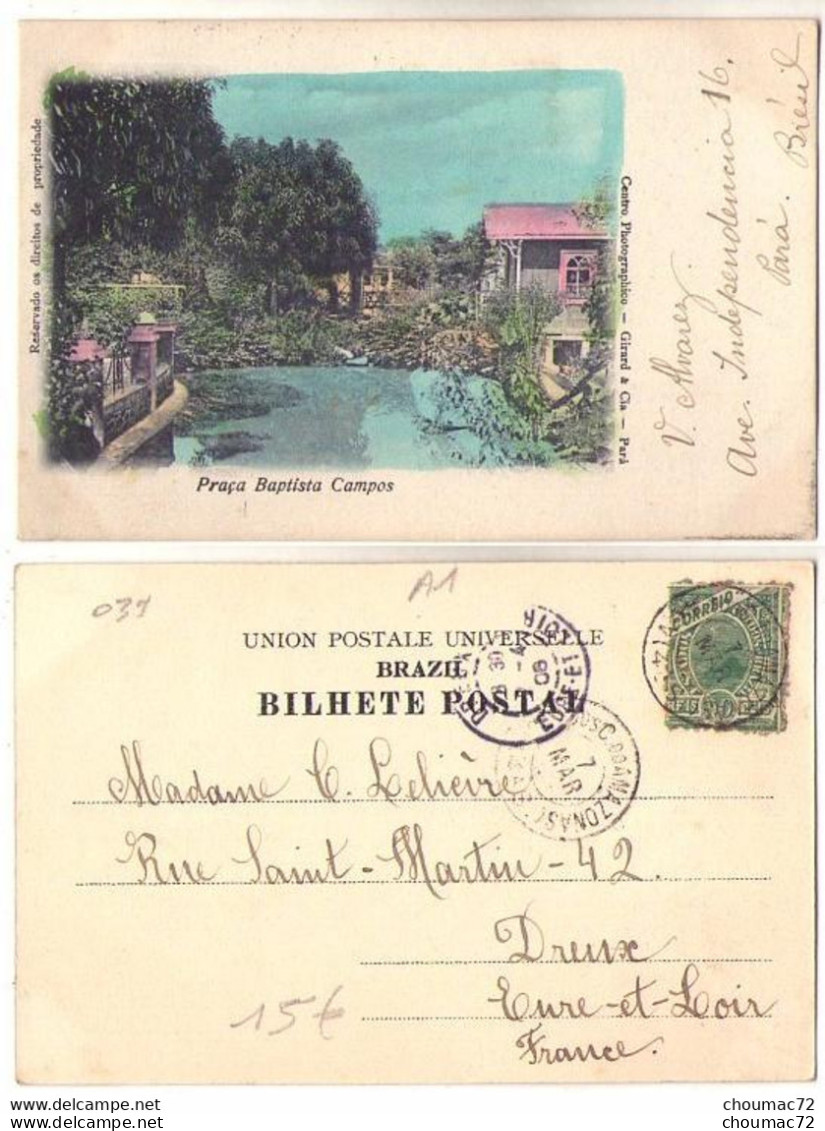 Reservado os direitos de propriedade
Centro Photographico — Girard & Cia — Pará
Praça Baptista Campos
V. Alvarez
Ave. Independencia 16.
Pará. Brésil
031
A1
UNION POSTALE UNIVERSELLE
BRAZIL
BILHETE POSTAL
CORREIO
EURE-ET-LOIR
7
MAR
AMAZONAS
7
MAR
Madame C. Lelièvre
Rue Saint-Martin-42
Dreux
Eure-et-Loir
France.
15€
choumac72
choumac72